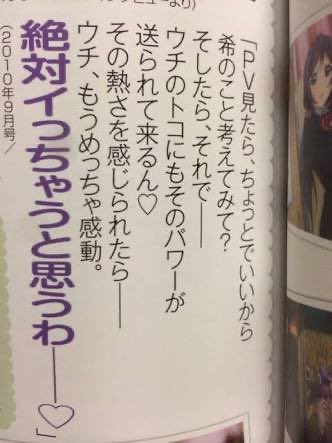 「PV見たら、ちょっとでいいから
希のこと考えてみて？
そしたら、それで――
ウチのトコにもそのパワーが
送られて来るん♡
その熱さを感じられたら――
ウチ、もうめっちゃ感動。
絶対イっちゃうと思うわ――♡」
（2010年9月号／